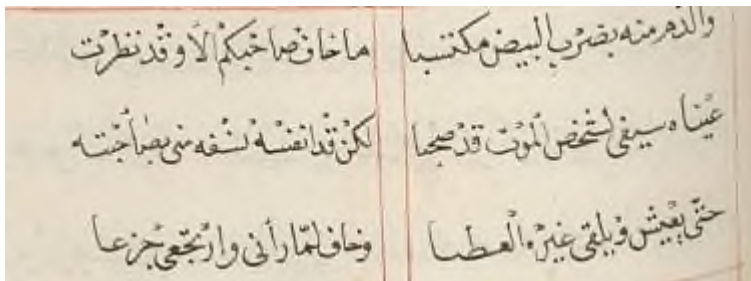 والدهر منه بضرب البيض مكتسبا ما خاف صاحبكم الا وقد نظرت
عيناه سيفي لشخص الموت قد صحبا لكن قد انفسه نشفه مني بصاحبته
حتى يعيش ويلقى غيره العطبا وخاف لما رأني وارتجعي جزعا